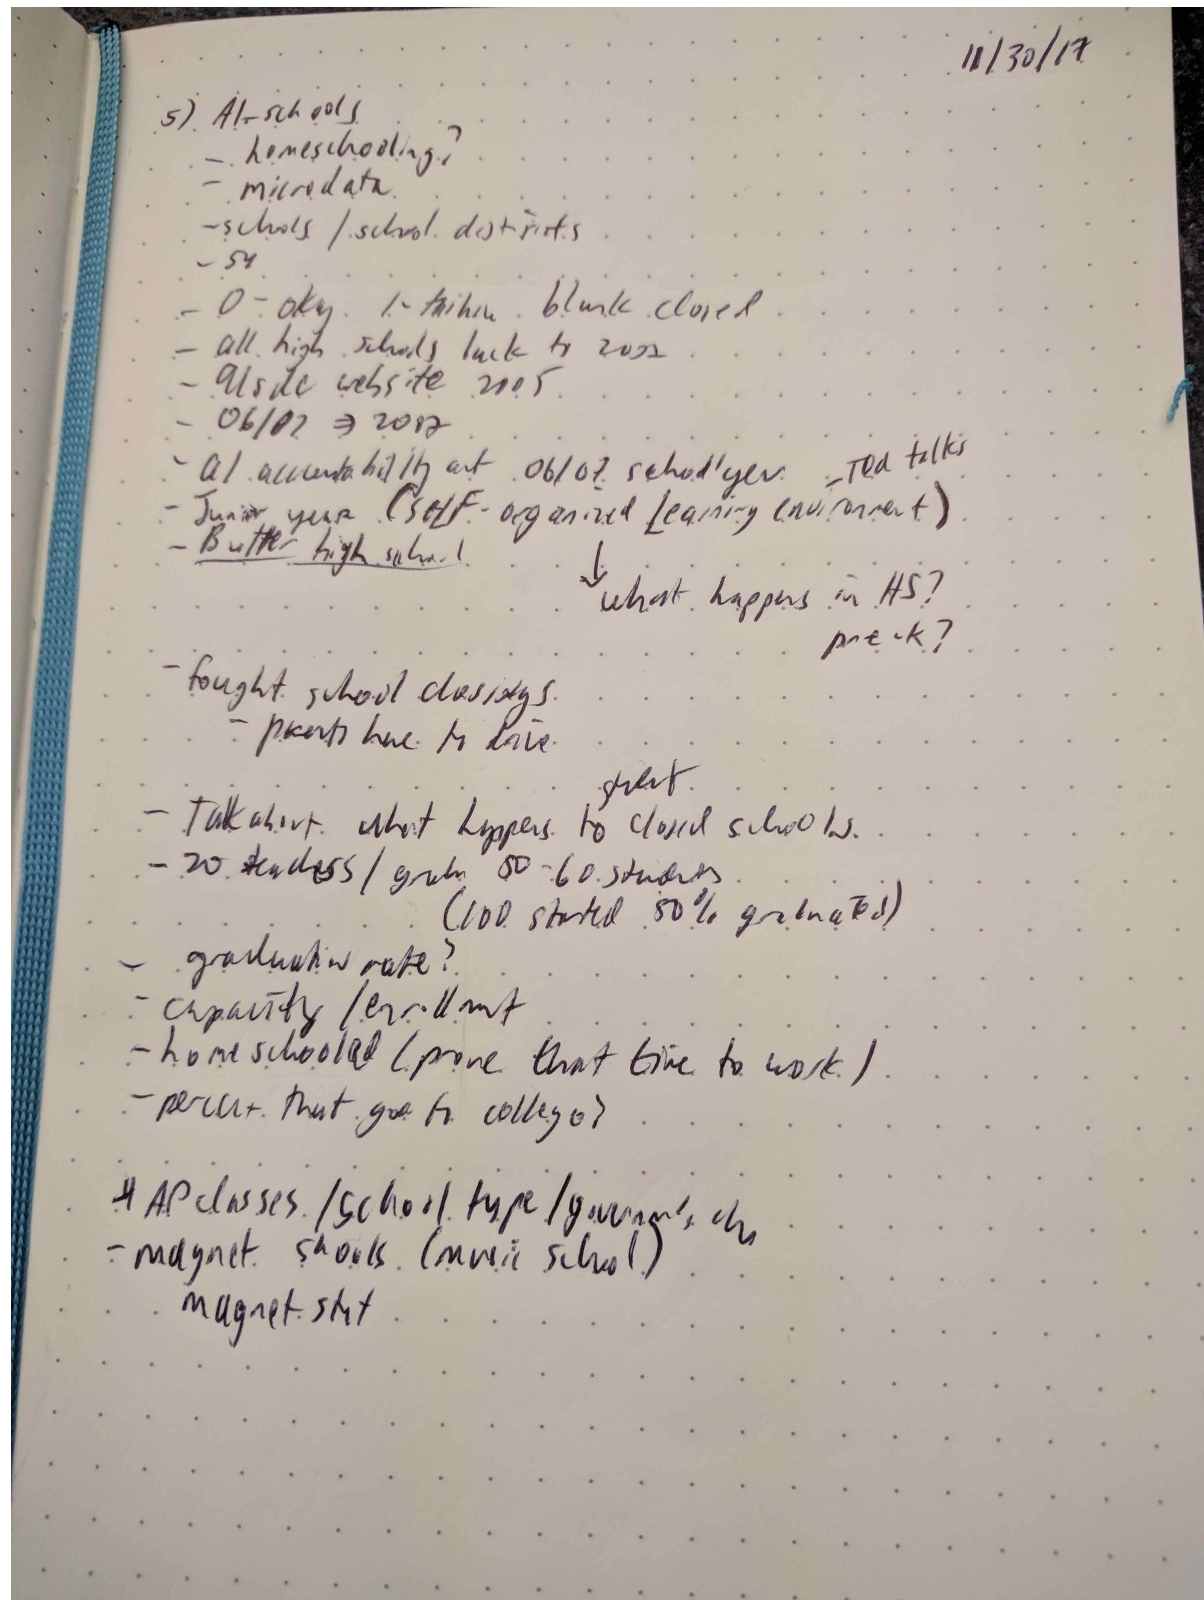 11/30/17
5) Al-schools
- homeschooling?
- microdata
- schols / school districts
- 0 - okay 1- blank closed
- all high schools back to 2002
- alsde website 2005
- 06/07 ⇒ 2007
- al accountability act 06/07 school year - TED talks
- Junior year (self-organized Learning Environment)
- Butler high school
↓ what happens in HS?
pre-k?
- fought school closings
- parents have to drive
- Talk about what happens to closed schools.
- 20 teachers / 50-60 students
(100 started 50% graduated)
- graduation rate?
- capacity / enrollment
- homeschooled (prove that time to work)
- percent that goe to college?
# AP classes / school type /
- magnet shools (music school)
magnet stat